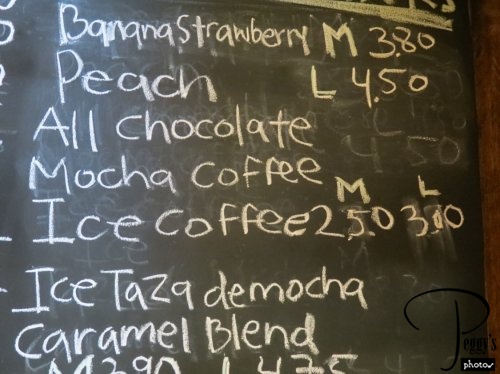 Banana Strawberry M 3.80
Peach L 4.50
All Chocolate
Mocha Coffee
M L
Ice Coffee 2.50 3.00
Ice Taza democha
Caramel Blend
M 3.90 L 4.75
Peggy's
photos